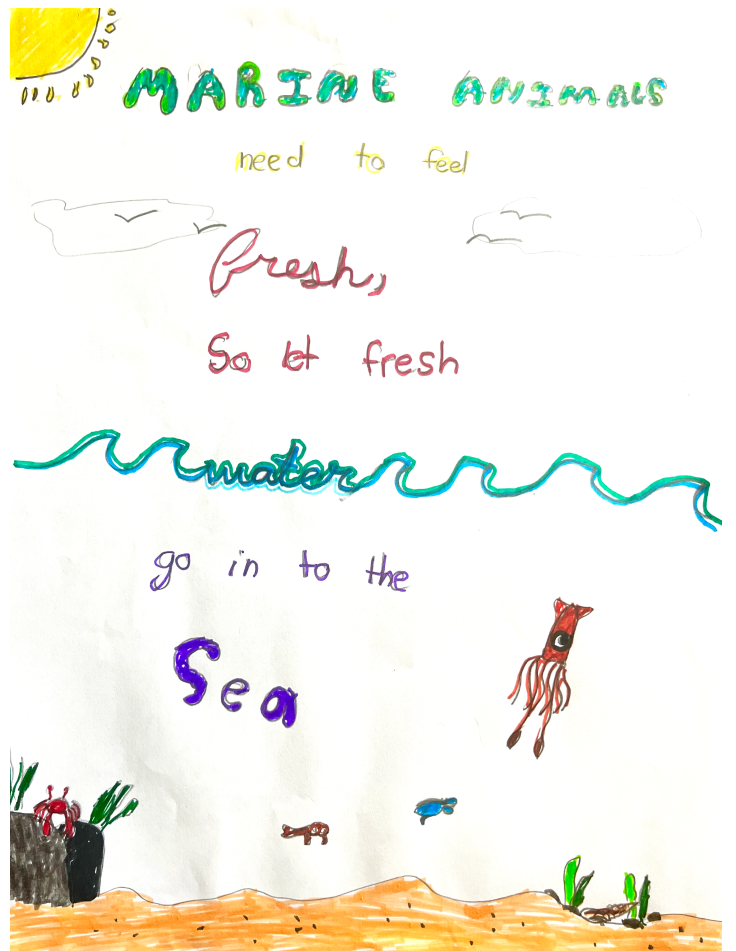 MARINE ANIMALS
need to feel
fresh,
So let fresh
water
go in to the
Sea